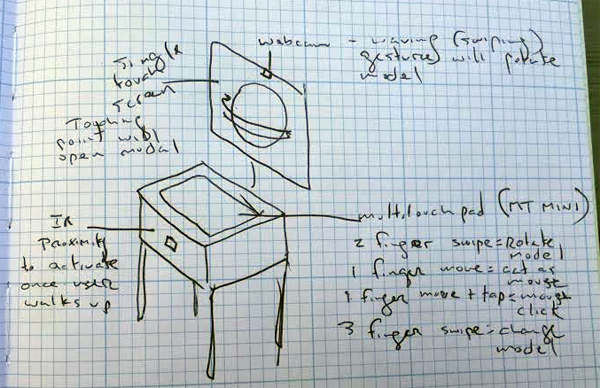 Single
touch
screen
Touching
point will
open modal
webcam - waving (swiping
gestures) will rotate
model
IR
Proximity
to activate
once user
walks up
multitouchpad (MT MINI)
2 finger swipe = Rotate
model
1 finger move = act as
mouse
1 finger move + tap = mouse
click
3 finger swipe = change
model